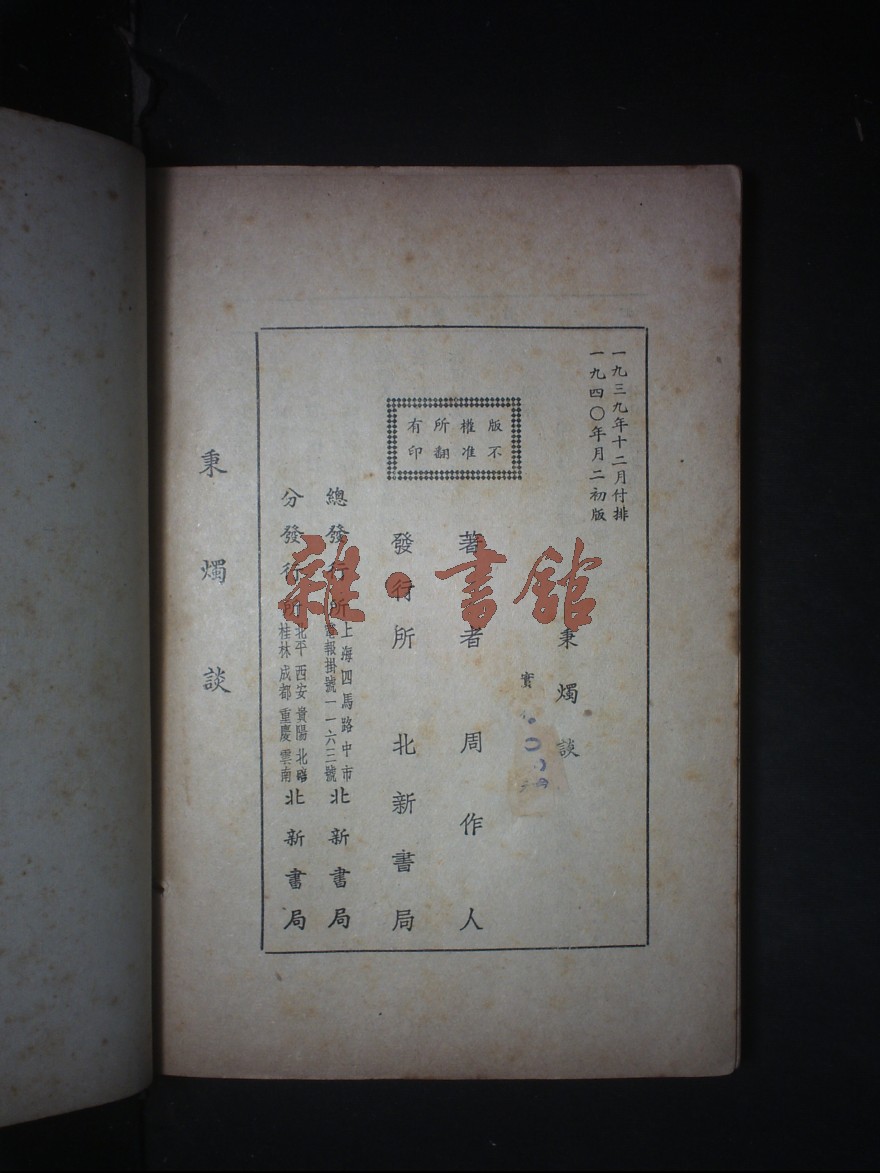 一九三九年十二月付排
一九四〇年月二初版
秉燭談
實
著者 周作人
版權所有
不准翻印
發行所 北新書局
總發行所 上海四馬路中市 電報掛號一一六三號 北新書局
分發行所 北平 西安 貴陽 北碚 桂林 成都 重慶 雲南 北新書局
秉燭談
雜·書館